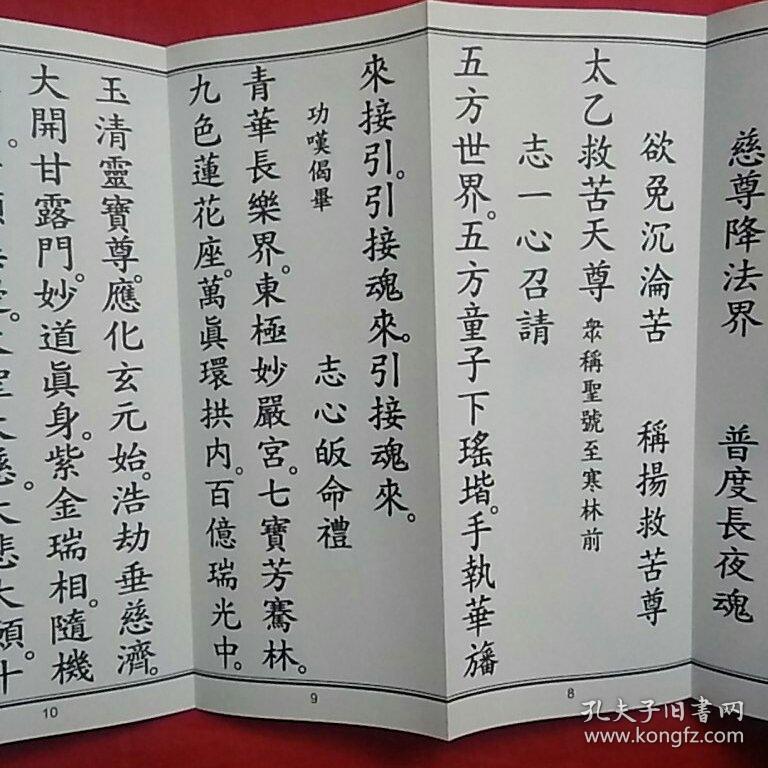 慈尊降法界 普度長夜魂
欲免沉淪苦 稱揚救苦尊
太乙救苦天尊 衆稱聖號至寒林前
志一心召請
五方世界。五方童子下瑤堦。手執華旛
來接引。引接魂來。引接魂來。
功嘆偈畢
志心皈命禮
青華長樂界。東極妙嚴宮。七寶芳騫林。
九色蓮花座。萬眞環拱内。百億瑞光中。
玉清靈寶尊。應化玄元始。浩劫垂慈濟。
大開甘露門。妙道眞身。紫金瑞相。隨機
8
9
10
孔夫子旧書网
www.kongfz.com